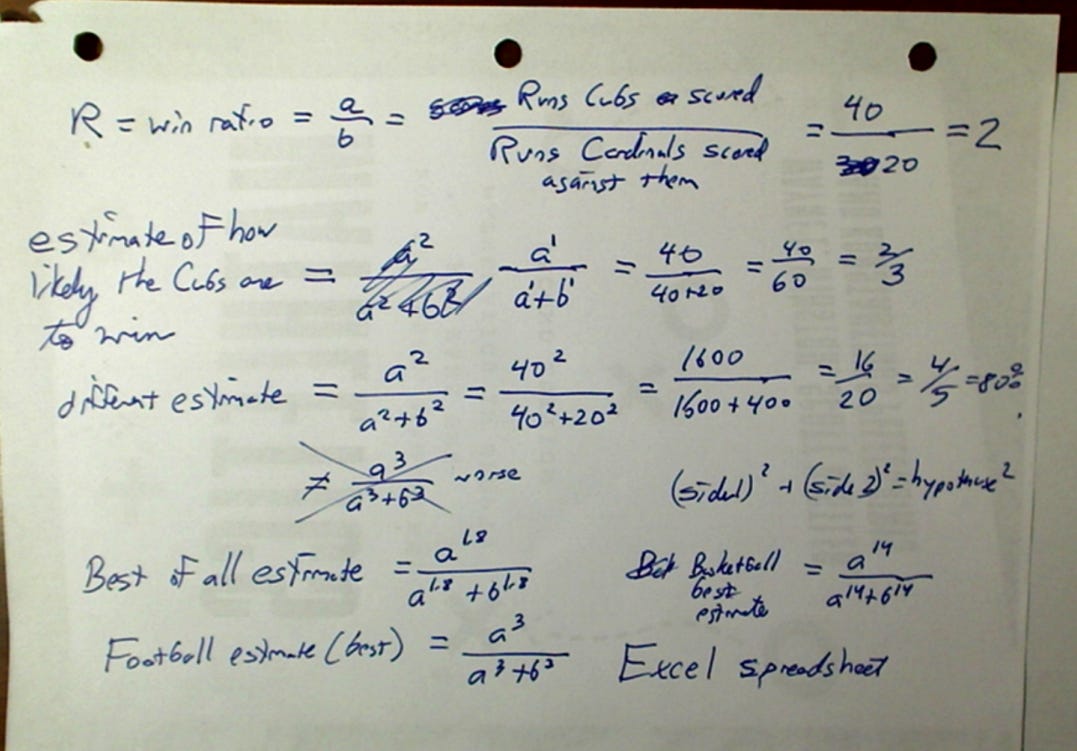 R = win ratio = a/b = Runs Cubs scored / Runs Cardinals scored against them = 40/20 = 2
estimate of how likely the Cubs are to win = a¹/(a¹+b¹) = 40/(40+20) = 40/60 = 2/3
different estimate = a²/(a²+b²) = 40²/(40²+20²) = 1600/(1600+400) = 16/20 = 4/5 = 80%
≠ a³/(a³+b³) worse
(side1)² + (side 2)² = hypotnuse²
Best of all estimate = a^1.8/(a^1.8 + b^1.8)
Basketball best estimate = a^14/(a^14+b^14)
Football estimate (best) = a³/(a³+b³)
Excel spreadsheet